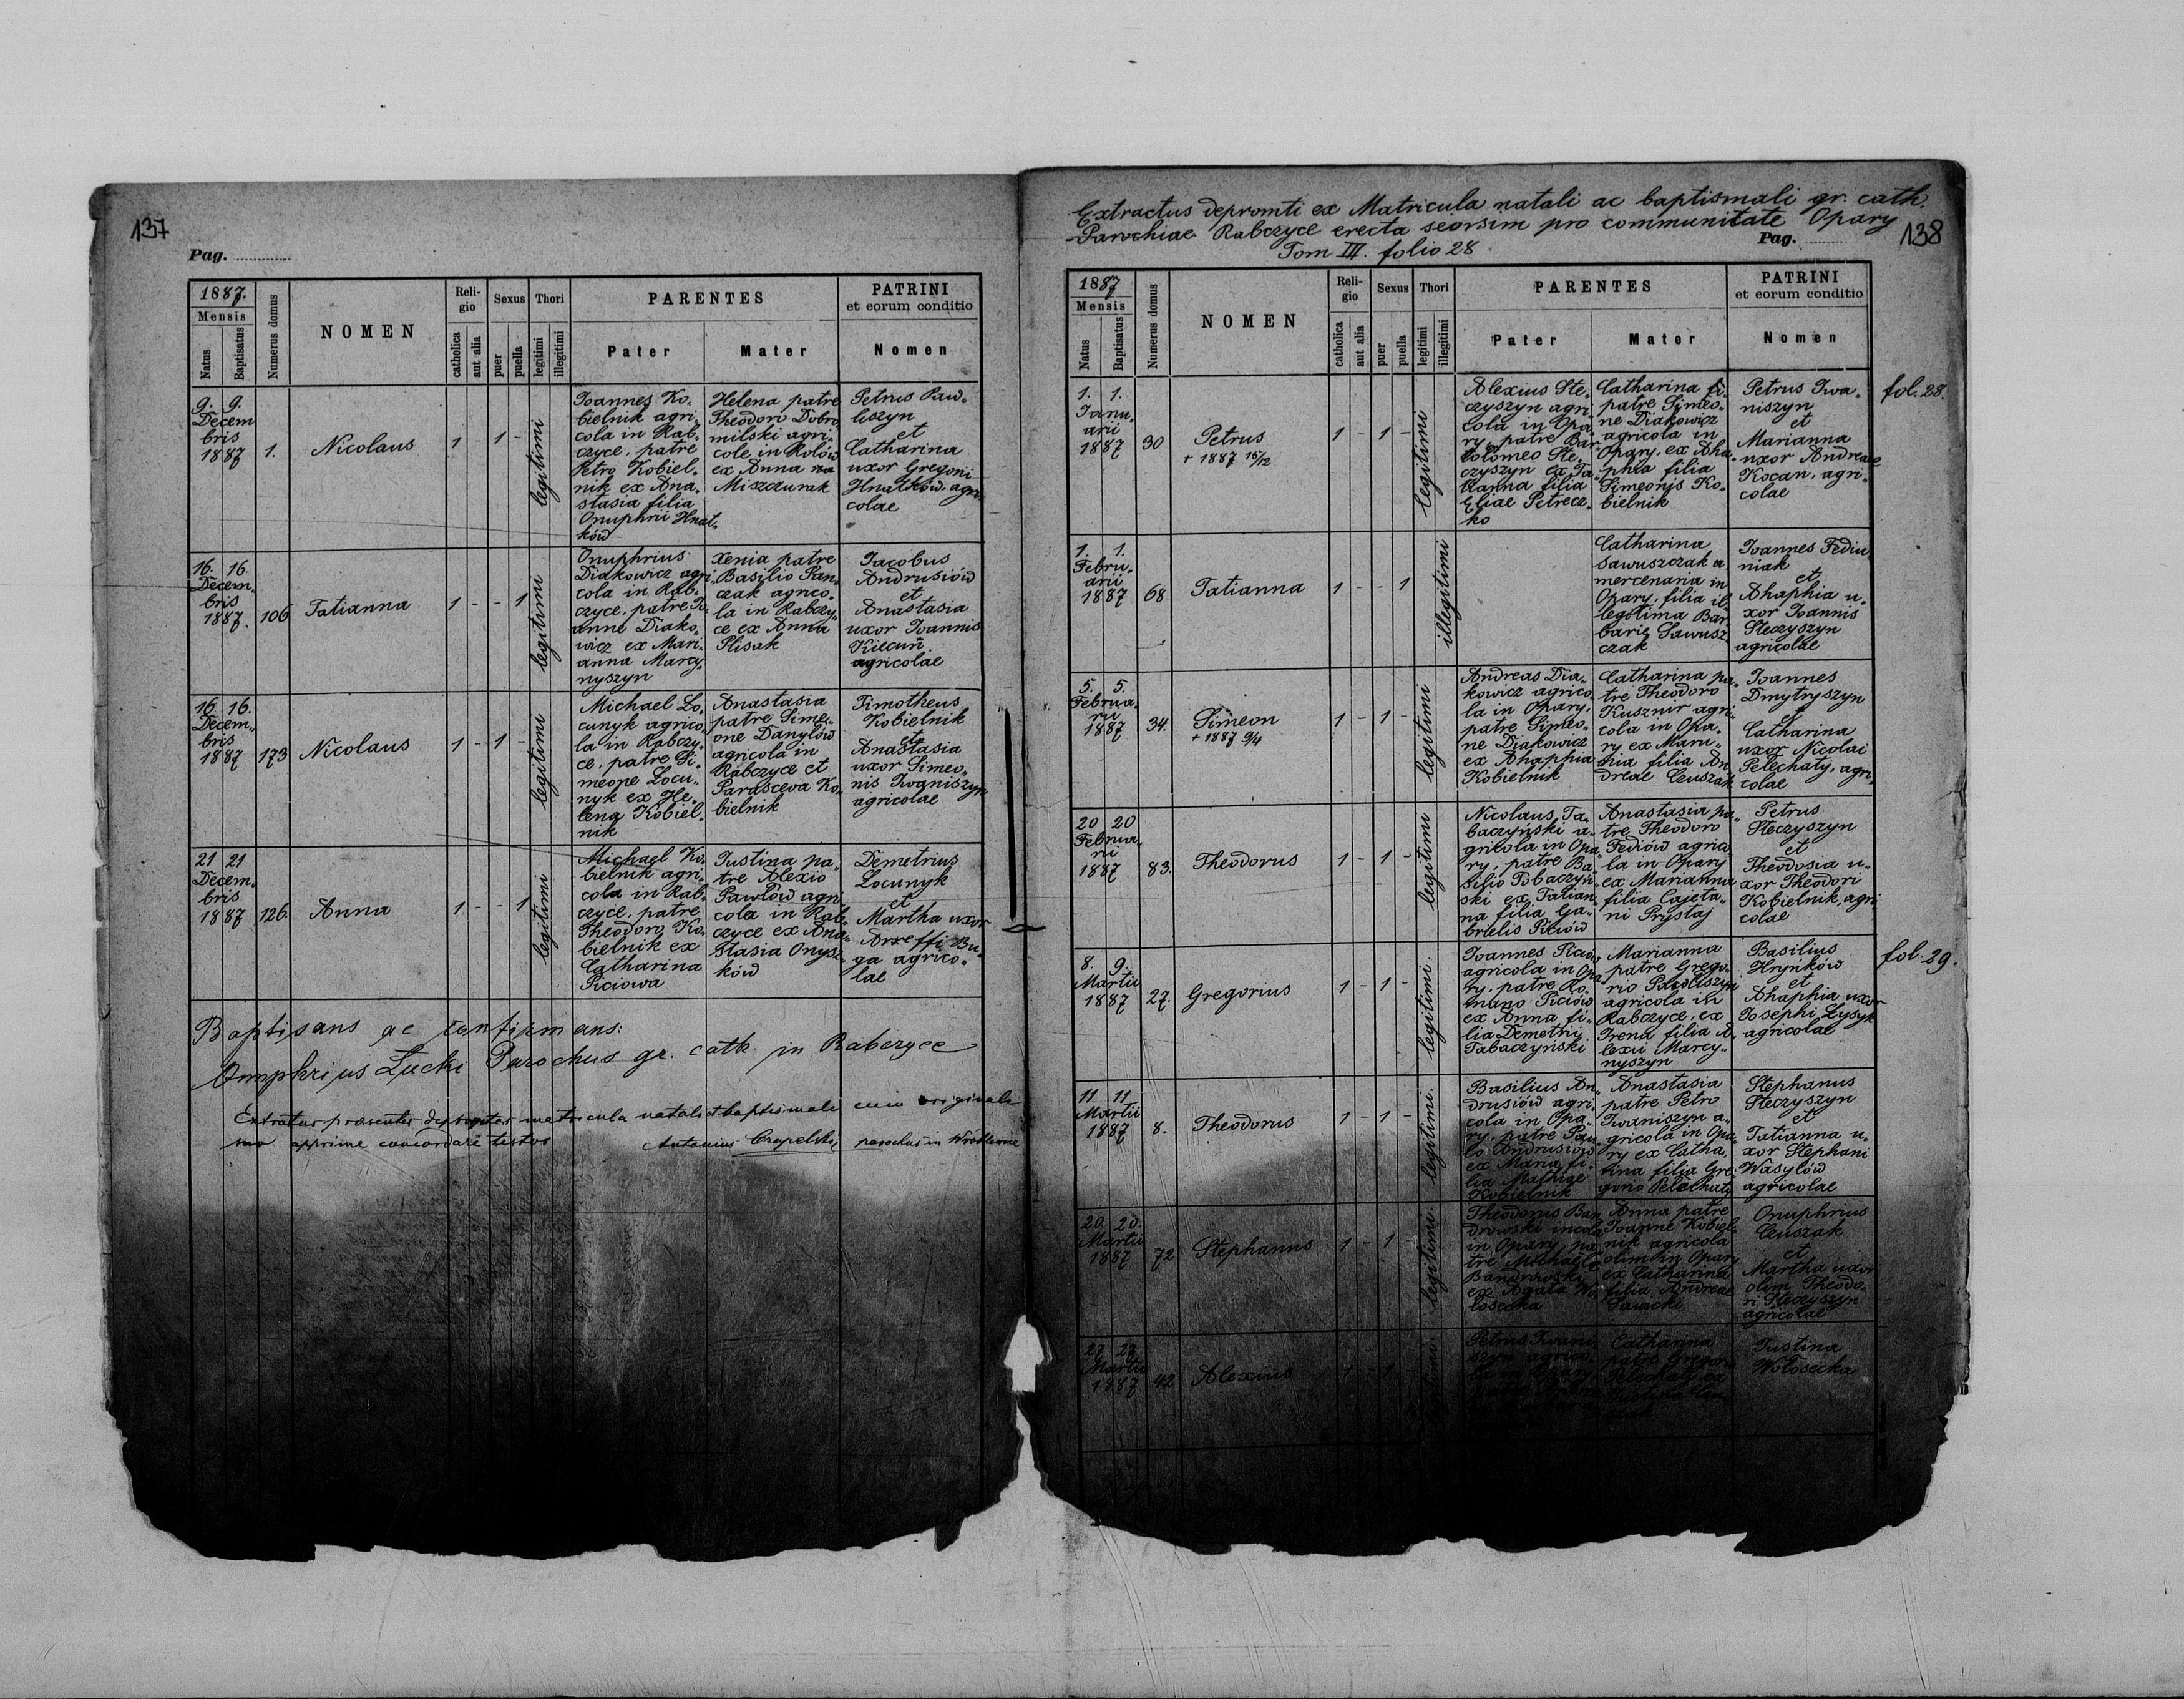 137
Pag.
1887.
Mensis
Natus
Baptisatus
Numerus domus
NOMEN
Religio
catholica
aut alia
Sexus
puer
puella
Thori
legitimi
illegitimi
PARENTES
Pater
Mater
PATRINI
et eorum conditio
Nomen
9. 9.
Decem
bris
1887
1.
Nicolaus
1 - 1 -
legitimi
Joannes Ko„
bielnik agri„
cola in Rab„
czyce, patre
Petro Kobiel„
nik ex Ana„
stasia filia
Onuphrii Hnat„
ków
Helena patre
Theodoro Dobro
milski agri„
cole in Rolów
ex Anna na
Miszczurak
Petrus Paw„
liszyn
et
Catharina
uxor Gregorii
Hnatków agri
colae
16. 16.
Decem„
bris
1887.
106
Tatianna
1 - - 1
legitimi
Onuphrius
Diakowicz agri
cola in Rab„
czyce, patre Jo„
anne Diako„
wicz ex Mari„
anna Marcy„
nyszyn
Xenia patre
Basilio Pan„
czak agrico„
la in Rabczy„
ce ex Anna
Plisak
Jacobus
Andrusiów
et
Anastasia
uxor Joannis
Kiecuń
agricolae
16. 16.
Decem„
bris
1887
173
Nicolaus
1 - 1 -
legitimi
Michael Lo„
cunyk agrico„
la in Rabczy„
ce, patre Si„
meone Locu„
nyk ex He„
lena Kobiel„
nik
Anastasia
patre Sime„
one Danylów
agricola in
Rabczyce et
Parasceva Ko„
bielnik
Timotheus
Kobielnik
et
Anastasia
uxor Simeo„
nis Iwaniszyn
agricolae
21 21
Decem„
bris
1887
126.
Anna
1 - - 1
legitimi
Michael Ko„
bielnik agri„
cola in Rab„
czyce, patre
Theodoro Ko„
bielnik ex
Catharina
Piciowa
Justina pa„
tre Alexio
Pawłów agri
cola in Rab„
czyce ex Ana„
stasia Onys„
ków
Demetrius
Locunyk
et
Martha uxor
Arseffi Bu„
ga agrico„
lae
Baptisans ac confirmans:
Onuphrius Łucki Parochus gr. cath. in Rabczyce
matricula natali et baptismali cum originale
suo apprime concordare testor
Antonius parochus in Wróblowice
Extractus depromti ex Matricula natali ac baptismali gr. cath.
Parochiae Rabczyce erecta seorsim pro communitate Opary
Tom III. folio 28
Pag.
138
1887
Mensis
Natus
Baptisatus
Numerus domus
NOMEN
Religio
catholica
aut alia
Sexus
puer
puella
Thori
legitimi
illegitimi
PARENTES
Pater
Mater
PATRINI
et eorum conditio
Nomen
1. 1.
Janu„
arii
1887
30
Petrus
+ 1887 15/12
1 - 1 -
legitimi
Alexius Ste„
czyszyn agri„
cola in Opa„
ry, patre Bar„
tolomeo Ste„
czyszyn ex Ta„
tianna filia
Eliae Petrecz„
ko
Catharina
patre Simeo„
ne Diakowicz
agricola in
Opary, ex Aha„
phia filia
Simeonis Ko„
bielnik
Petrus Iwa„
niszyn
et
Marianna
uxor Andreae
Kocan, agri„
colae
fol. 28.
1. 1.
Febru„
arii
1887
68
Tatianna
1 - - 1
illegitimi
Catharina
Sawuszczak a
mercenaria in
Opary, filia il„
legitima Bar„
barie Sawusz„
czak
Joannes Fediu
niak
et
Ahaphia u„
xor Joannis
Steczyszyn
agricolae
5. 5.
Februa„
rii
1887
34.
Simeon
+ 1887 9/4
1 - 1 -
legitimi
Andreas Dia„
kowicz agrico
la in Opary,
patre Simeo„
ne Diakowicz
ex Ahaphia
Kobielnik
Catharina pa„
tre Theodoro
Kusznir agri„
cola in Opa„
ry ex Mari„
nia filia An
dreae Czuszak
Joannes
Dmytryszyn
et
Catharina
uxor Nicolai
Pelechaty, agri„
colae
20 20
Februa„
rii
1887
83.
Theodorus
1 - 1 -
legitimi
Nicolaus Ta„
baczyński a„
gricola in Opa„
ry, patre Ba„
silio Tobaczyń„
ski ex Tatian„
na filia Ga„
brielis Piciów
Anastasia pa„
tre Theodoro
Fediów agrico
la in Opary
ex Marianna
filia Cajeta„
ni Prystaj
Petrus
Steczyszyn
et
Theodosia u„
xor Theodori
Kobielnik, agri„
colae
8. 9.
Martii
1887
27.
Gregorius
1 - 1 -
legitimi.
Joannes Piciów
agricola in Opa
ry, patre Ro„
mano Piciów
ex Anna fi„
lia Demetrii
Tabaczyński
Marianna
patre Grego„
rio Pawliszyn
agricola in
Rabczyce, ex
Irena filia A„
lexii Marcy„
nyszyn
Basilius
Hrynków
et
Ahaphia uxor
Josephi Lysyk
agricolae
fol. 29.
11 11
Martii
1887
8.
Theodorus
1 - 1 -
legitimi.
Basilius An„
drusiów agri„
cola in Opa„
ry, patre Pau„
lo Andrusiów
ex Maria fi„
lia Mathiae
Kobielnik
Anastasia
patre Petro
Iwaniszyn a„
gricola in Opa„
ry ex Catha„
rina filia Gre„
gorio Pelechaty
Stephanus
Steczyszyn
et
Tatianna u„
xor Stephani
Wasylów
agricolae
20. 20.
Martii
1887
72
Stephanus
1 - 1 -
legitimi
Theodorus Ban
drowski incola
in Opary, pa„
tre Michaele
Bandrowski
ex Agata Wo„
łosecka
Anna patre
Joanne Kobiel„
nik agricola
olim in Opary
ex Catharina
filia Andreae
Onuphrius
Czuszak
et
Martha uxor
olim Theodo„
ri Steczyszyn
agricolae
27. 27.
Martii
1887
42
Alexius
1 1
Petrus Iwani
Catharina
patre Gregorio
Pelechaty ex
Justina
Wołosecka